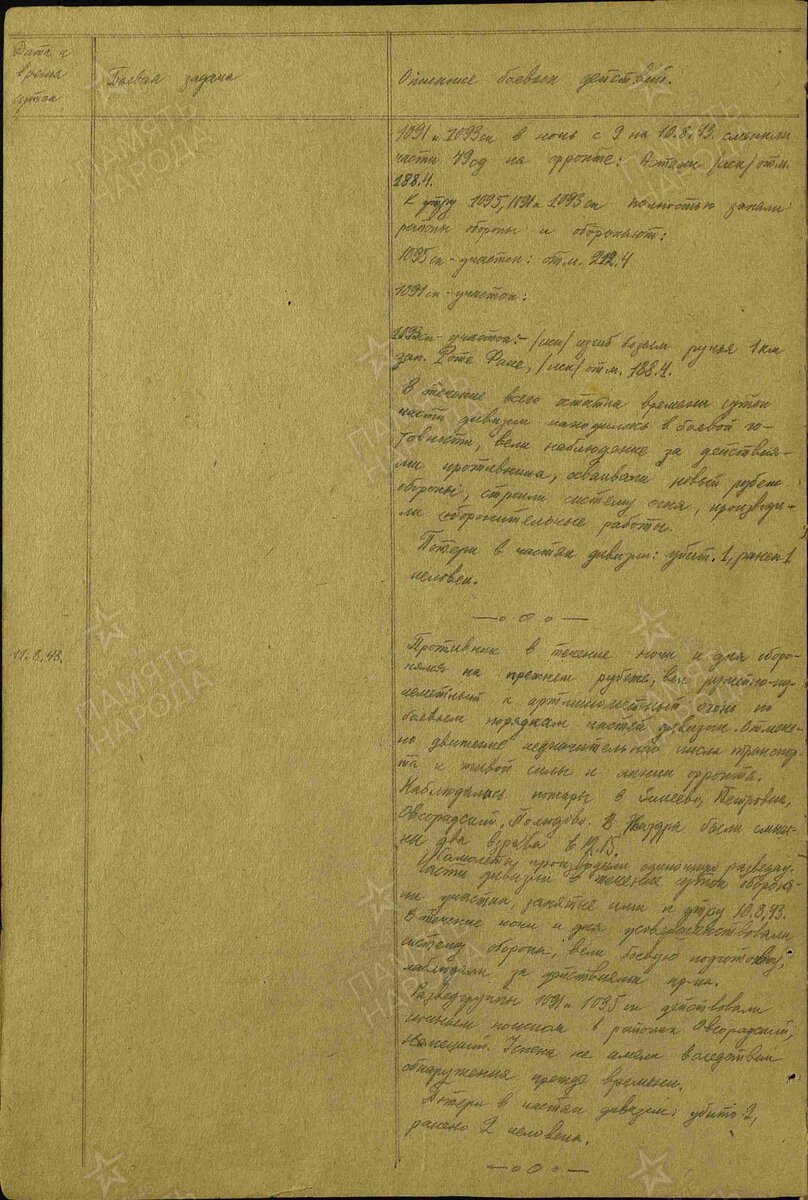 Дата и
время
суток
Боевая задача
Описание боевых действий.
1091 и 1093 сп в ночь с 9 на 10.8.43. сменили
части 49сд на фронте: /иск/ отм.
188.4.
К утру 1095, 1091 и 1093 сп полностью заняли
районы обороны и обороняют:
1095 сп - участок: отм. 212.4
1091 сп - участок:
1093 сп - участок: - /иск/ изгиб ручья 1 км
зап. Роте Фане, /иск/ отм. 188.4.
В течение всего времени суток
части дивизии находились в боевой го-
товности, вели наблюдение за действия-
ми противника, осваивали новый рубеж
обороны, строили систему огня, производи-
ли оборонительные работы.
Потери в частях дивизии: убит. 1, ранен 1
человек.
—о 0 о—
11.8.43.
Противник в течение ночи и дня оборо-
нялся на прежнем рубеже, вел ружейно-пу-
леметный и артминометный огонь по
боевым порядкам частей дивизии. Отмече-
но движение незначительного числа транспор-
та и живой силы к линии фронта.
Наблюдались пожары в Петровка,
Авсорадский, Полюдово. В Жиздра были слыш-
ны два взрыва в 12.15.
Самолеты производили одиночную разведку.
Части дивизии в течение суток обороня-
ли участки, занятые ими к утру 10.8.43.
В течение ночи и дня усовершенствовали
систему обороны, вели боевую подготовку,
наблюдали за действиями пр-ка.
Разведгруппы 1091 и 1095 сп действовали
ночным поиском в районах Авсорадский,
Немецкий. Успеха не имели вследствии
обнаружения прежде времени.
Потери в частях дивизии: убито-2,
ранено 2 человека.
—о 0 о—
ПАМЯТЬ
НАРОДА
ПАМЯТЬ
НАРОДА
ПАМЯТЬ
НАРОДА
ПАМЯТЬ
НАРОДА